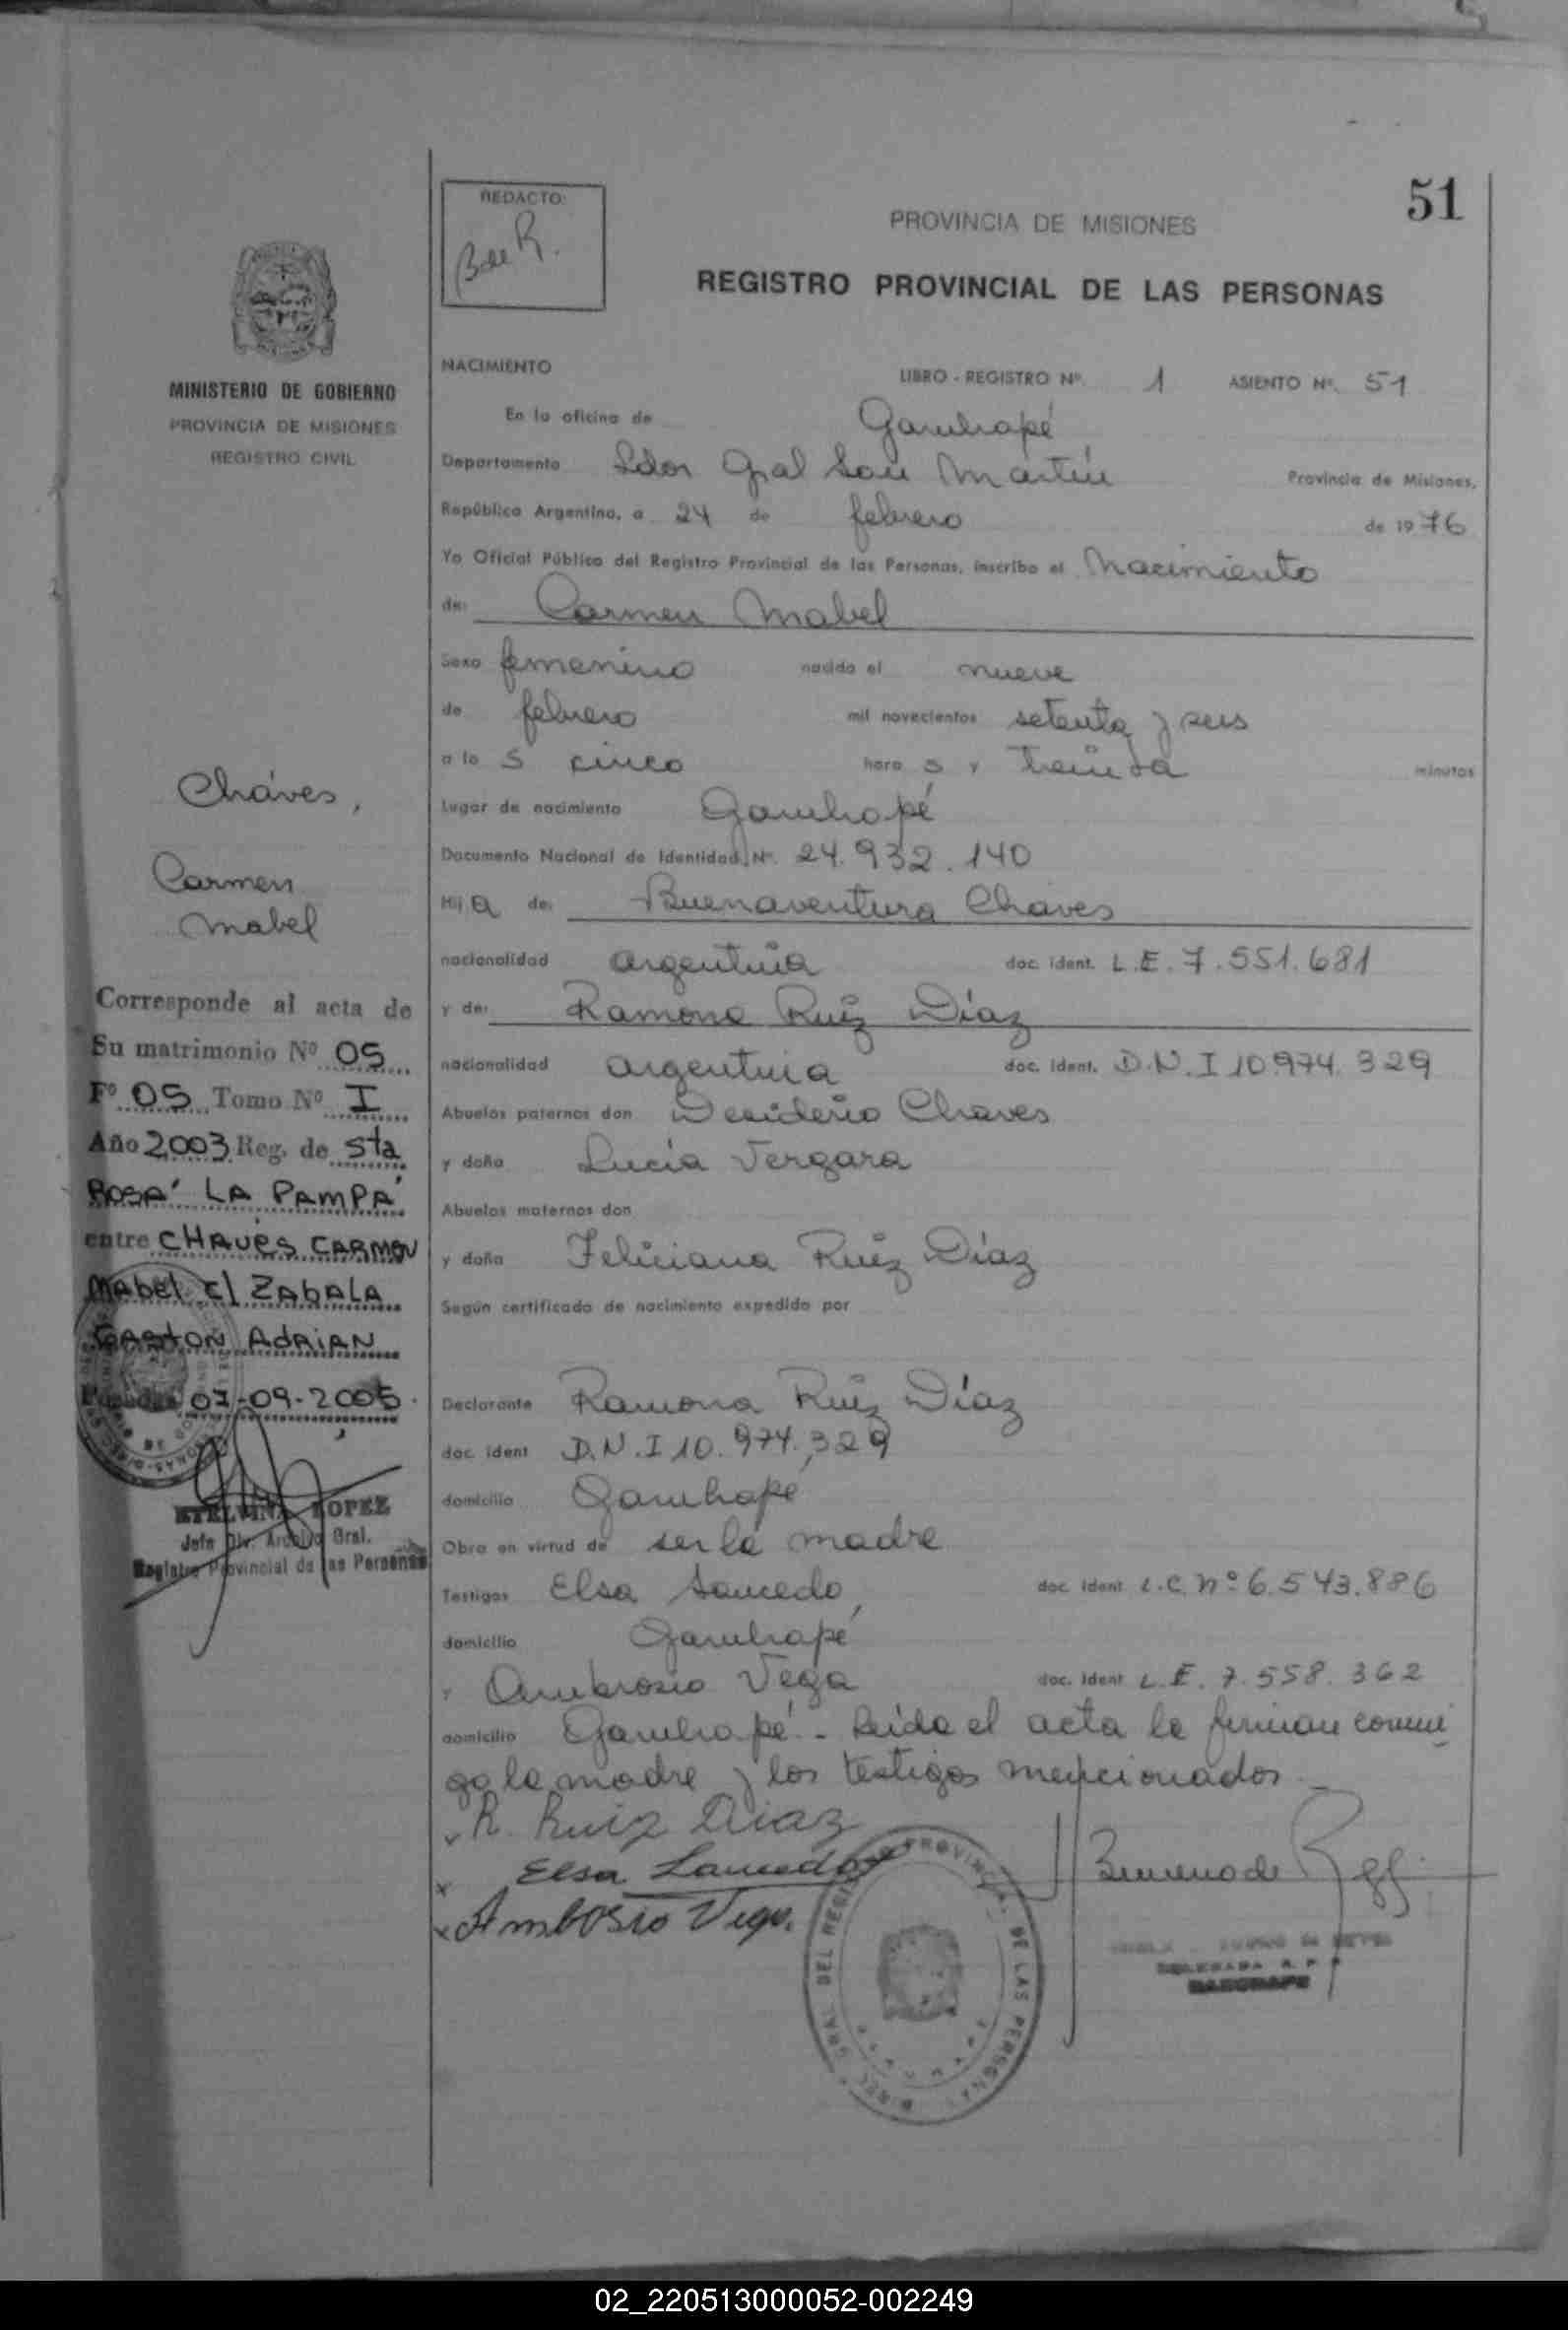 51
REDACTO:
B de R.
PROVINCIA DE MISIONES
REGISTRO PROVINCIAL DE LAS PERSONAS
MINISTERIO DE GOBIERNO
PROVINCIA DE MISIONES
REGISTRO CIVIL
Cháves,
Carmen
Mabel
Corresponde al acta de
Su matrimonio Nº 05
Fº 05 Tomo Nº I
Año 2003 Reg. de Sta
ROSA LA PAMPA
entre CHAVES CARMEN
Mabel c/ ZABALA
GASTON ADRIAN
Posadas 07-09-2005
ETELVINA LOPEZ
Jefe Div. Archivo Gral.
Registro Provincial de las Personas
NACIMIENTO LIBRO - REGISTRO Nº. 1 ASIENTO Nº. 51
En la oficina de Garuhapé
Departamento Ldor Gral San Martín Provincia de Misiones,
República Argentina, a 24 de febrero de 1976
Yo Oficial Público del Registro Provincial de las Personas, inscribo el Nacimiento
de: Carmen Mabel
Sexo femenino nacido el nueve
de febrero mil novecientos setenta y seis
a las cinco horas y treinta minutos
Lugar de nacimiento Garuhapé
Documento Nacional de Identidad Nº. 24.932.140
Hija de: Buenaventura Chaves
nacionalidad argentina doc. ident. L.E. 7.551.681
y de: Ramona Ruiz Díaz
nacionalidad argentina doc. ident. D.N.I 10.974.329
Abuelos paternos don Desiderio Chaves
y doña Lucía Vergara
Abuelos maternos don
y doña Feliciana Ruiz Díaz
Según certificado de nacimiento expedido por
Declarante Ramona Ruiz Díaz
doc. ident D.N.I 10.974.329
domicilio Garuhapé
Obra en virtud de ser la madre
Testigos Elsa Saucedo,
doc. ident L.C. nº 6.543.886
domicilio Garuhapé
y Ambrosio Vega doc. ident L.E. 7.558.362
domicilio Garuhapé - Leída el acta la firman conmi
go la madre y los testigos mencionados.
R. Ruiz Diaz
Elsa Saucedo
Ambosio Vega.
DELEGADA R. P. P
GARUHAPE
02_220513000052-002249